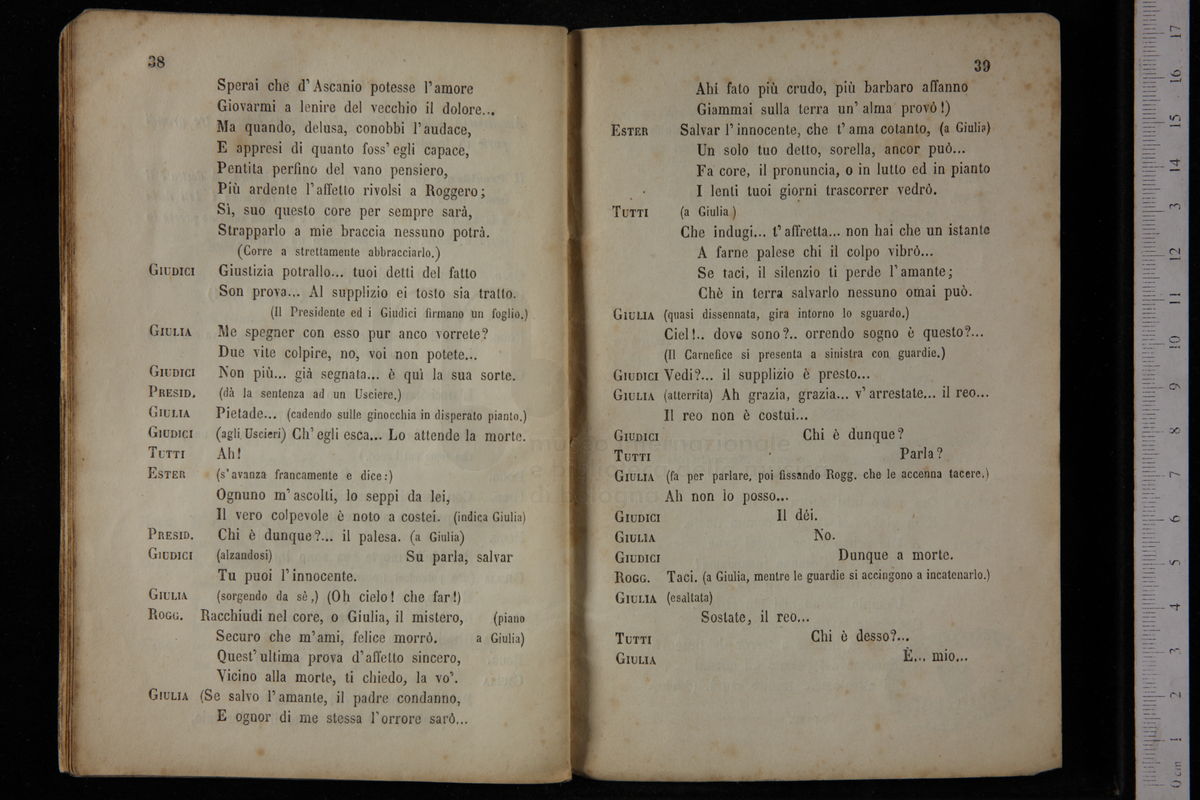 38
Sperai che d' Ascanio potesse l'amore
Giovarmi a lenire del vecchio il dolore...
Ma quando, delusa, conobbi l'audace,
E appresi di quanto foss' egli capace,
Pentita perfino del vano pensiero,
Più ardente l'affetto rivolsi a Roggero;
Sì, suo questo core per sempre sarà,
Strapparlo a mie braccia nessuno potrà.
(Corre a strettamente abbracciarlo.)
GIUDICI Giustizia potrallo... tuoi detti del fatto
Son prova... Al supplizio ei tosto sia tratto.
(Il Presidente ed i Giudici firmano un foglio.)
GIULIA Me spegner con esso pur anco vorrete?
Due vite colpire, no, voi non potete...
GIUDICI Non più... già segnata... è quì la sua sorte.
PRESID. (dà la sentenza ad un Usciere.)
GIULIA Pietade... (cadendo sulle ginocchia in disperato pianto.)
GIUDICI (agli Uscieri) Ch' egli esca... Lo attende la morte.
TUTTI Ah!
ESTER (s' avanza francamente e dice:)
Ognuno m' ascolti, lo seppi da lei,
Il vero colpevole è noto a costei. (indica Giulia)
PRESID. Chi è dunque?... il palesa. (a Giulia)
GIUDICI (alzandosi) Su parla, salvar
Tu puoi l' innocente.
GIULIA (sorgendo da sè,) (Oh cielo! che far!)
ROGG. Racchiudi nel core, o Giulia, il mistero, (piano
Securo che m'ami, felice morrò. a Giulia)
Quest' ultima prova d' affetto sincero,
Vicino alla morte, ti chiedo, la vo'.
GIULIA (Se salvo l' amante, il padre condanno,
E ognor di me stessa l'orrore sarò...
39
Ahi fato più crudo, più barbaro affanno
Giammai sulla terra un' alma provò!)
ESTER Salvar l' innocente, che t' ama cotanto, (a Giulia)
Un solo tuo detto, sorella, ancor può...
Fa core, il pronuncia, o in lutto ed in pianto
I lenti tuoi giorni trascorrer vedrò.
TUTTI (a Giulia)
Che indugi... t' affretta... non hai che un istante
A farne palese chi il colpo vibrò...
Se taci, il silenzio ti perde l' amante;
Chè in terra salvarlo nessuno omai può.
GIULIA (quasi dissennata, gira intorno lo sguardo.)
Ciel!.. dove sono?.. orrendo sogno è questo?...
(Il Carnefice si presenta a sinistra con guardie.)
GIUDICI Vedi?... il supplizio è presto...
GIULIA (atterrita) Ah grazia, grazia... v' arrestate... il reo...
Il reo non è costui...
GIUDICI Chi è dunque?
TUTTI Parla?
GIULIA (fa per parlare, poi fissando Rogg. che le accenna tacere.)
Ah non io posso...
GIUDICI Il déi.
GIULIA No.
GIUDICI Dunque a morte.
ROGG. Taci. (a Giulia, mentre le guardie si accingono a incatenarlo.)
GIULIA (esaltata)
Sostate, il reo...
TUTTI Chi è desso?...
GIULIA È... mio...
museo internazionale
0 cm 1 2 3 4 5 6 7 8 9 10 11 12 13 14 15 16 17